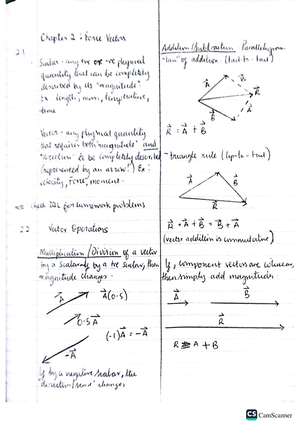 Chapter 2 : Force Vector
2.1
Scalar - any +ve or -ve physical
quantity that can be completely
described by its "magnitude"
Ex: length, mass, temperature,
time
Vector - any physical quantity
that requires both "magnitude" and
"direction" to be completely described
(represented by an arrow!) Ex:
velocity, Force, moment.
Check for homework problems
2.2 Vector Operations
Multiplication / Division of a vector
by a scalar by a +ve scalar, then
magnitude changes.
A
A(0.5)
0.5A
(-1)A = -A
-A
If by a negative scalar, the
direction/ changes
Addition/Subtraction Parallelogram
"law" of addition (tail-to-tail)
A
R
B
R = A + B
- triangle rule (tip-to-tail)
A
B
R
R = A + B = B + A
(vector addition is commutative)
If, component vectors are colinear,
then simply add magnitude.
A
B
R
R = A + B
CS CamScanner